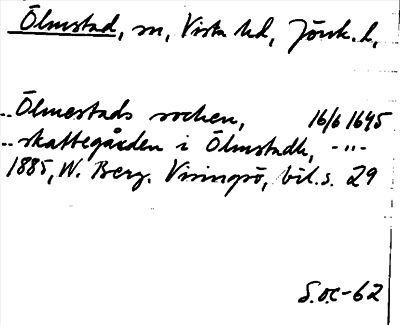 Ölmstad, sn, Vista hd, Jönk. l,
.. Ölmestads sochen, 16/6 1645
.. skattegården i Ölmstadh, -"-
1885, W. Berg. Visingsö, bil. s. 29
S.O.C-62